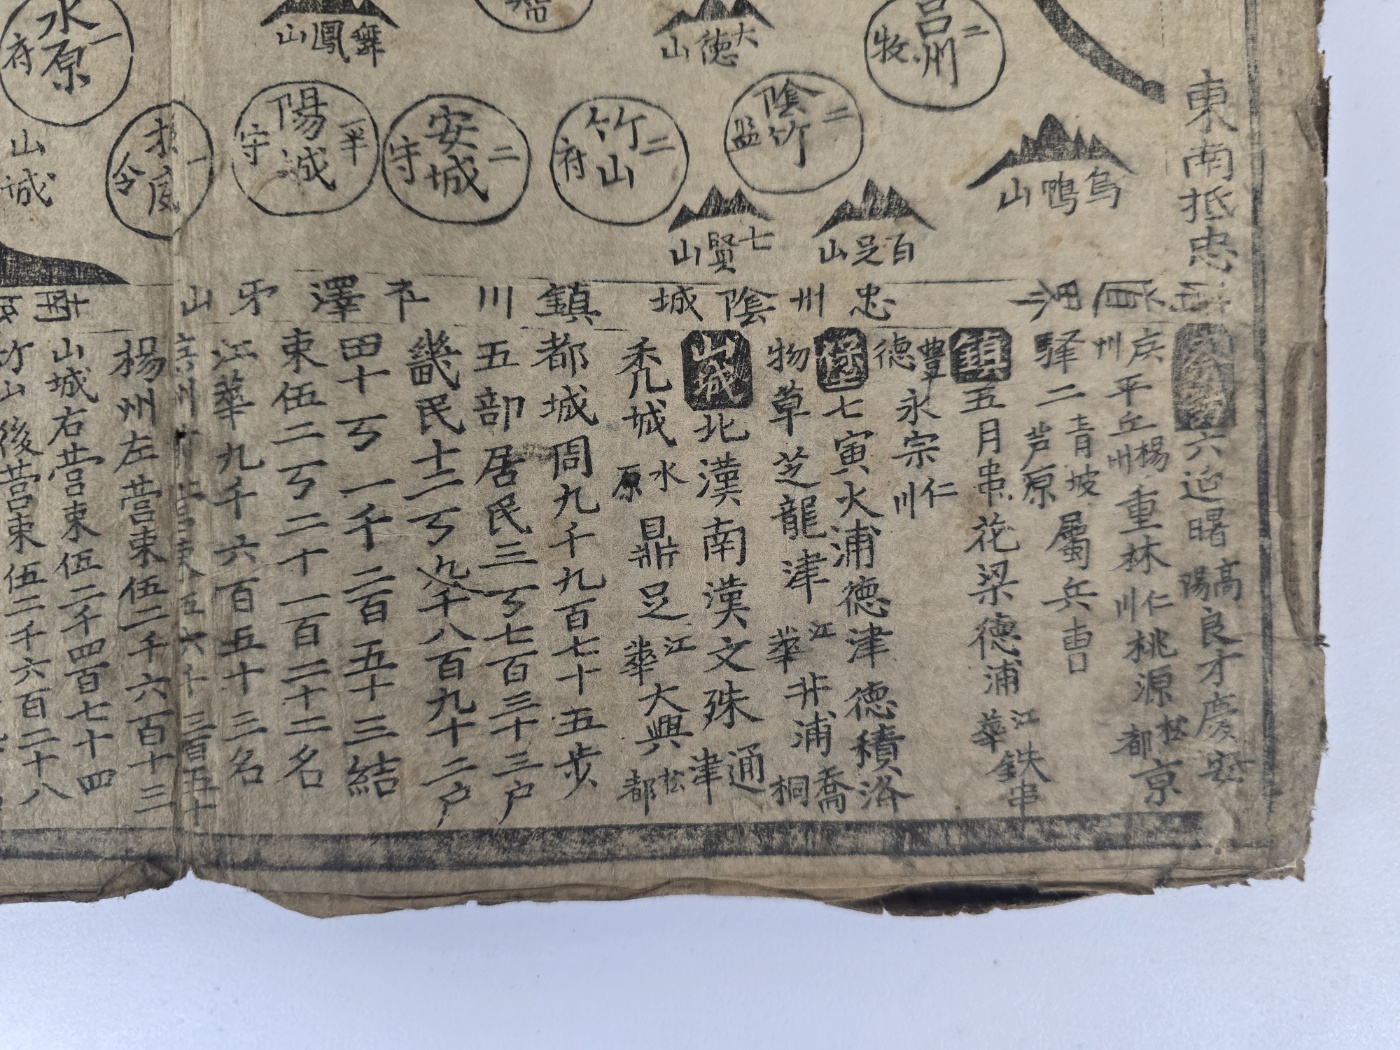 東南抵忠
水原 府 一
舞鳳山
大德山
呂州 牧 二
山城
令 一
陽城 守 半
安城 守 二
竹山 府 二
陰竹 監 二
烏鴨山
七賢山
百足山
忠州
陰城
鎮川
澤
牙山
六迎曙高陽良才慶安
平丘楊州重林仁川桃源松都京
驿二青坡芦原屬兵曺
鎮五月串花梁德浦江華鉄串
豊德永宗仁川
堡七寅火浦德津德積洛
物草芝龍津江華井浦喬桐
山城北漢南漢文殊通津
禿城水原鼎足江華大興松都
都城周九千九百七十五步
五部居民三丂七百三十三户
畿民十二丂九千八百九十二户
田十丂一千二百五十三結
束伍二丂二十一百二十二名
江華九千六百五十三名
楊州左营束伍二千六百十三
山城右营束伍二千四百七十四
竹山後营束伍二千六百二十八